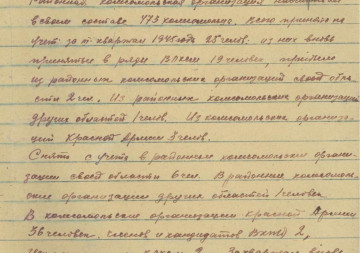 Районная комсомольская организация насчитывает
в своем составе 773 комсомольца. Всего принято на
учет за квартал 1945 года 25 членов: из них вновь
принятые в ряды ВЛКСМ 19 человек, прибыло
из районных комсомольских организаций своей обла-
сти 2 чел. Из районных комсомольских организаций
других областей 1 член. Из комсомольских организа-
ций Красной Армии 3 член.
Снято с учета в районные комсомольские органи-
зации своей области 6 чел. В районные комсомоль-
ские организации других областей 1 человек
В комсомольские организации Красной Армии
56 человек. членов и кандидатов ВКП(б) 2,